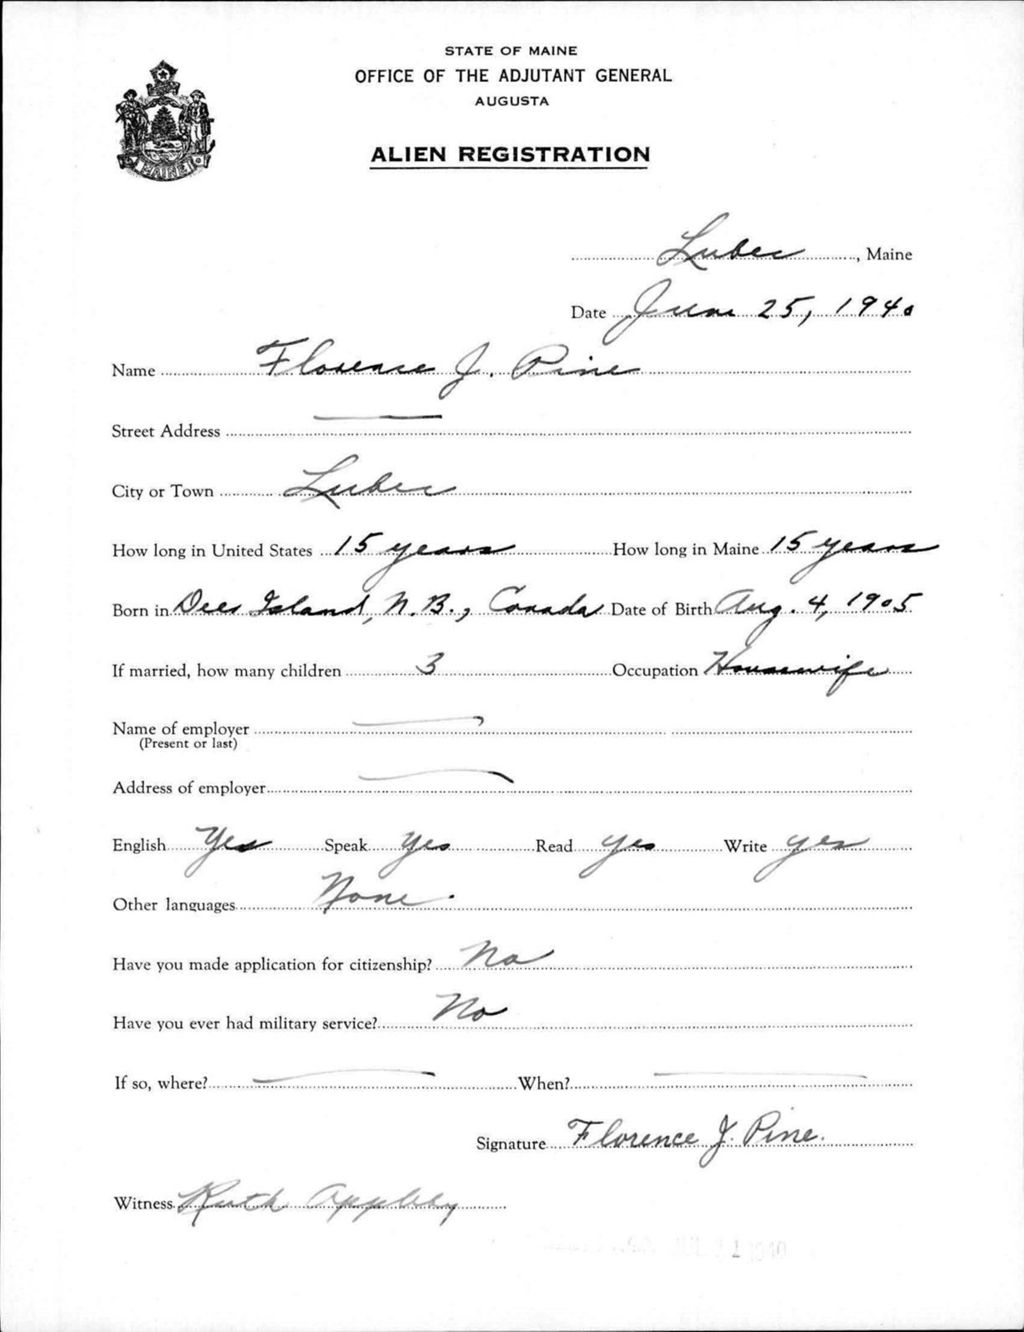 STATE OF MAINE
OFFICE OF THE ADJUTANT GENERAL
AUGUSTA
ALIEN REGISTRATION
MAINE
Lubec, Maine
Date June 25, 1940
Name Florence J. Pine
Street Address
City or Town Lubec
How long in United States 15 years How long in Maine 15 years
Born in Deer Island, N.B., Canada Date of Birth Aug. 4, 1905
If married, how many children 3 Occupation Housewife
Name of employer
(Present or last)
Address of employer
English Yes Speak Yes Read yes Write yes
Other languages None.
Have you made application for citizenship? No
Have you ever had military service? No
If so, where? When?
Signature Florence J. Pine.
Witness Ruth Appleby
1940